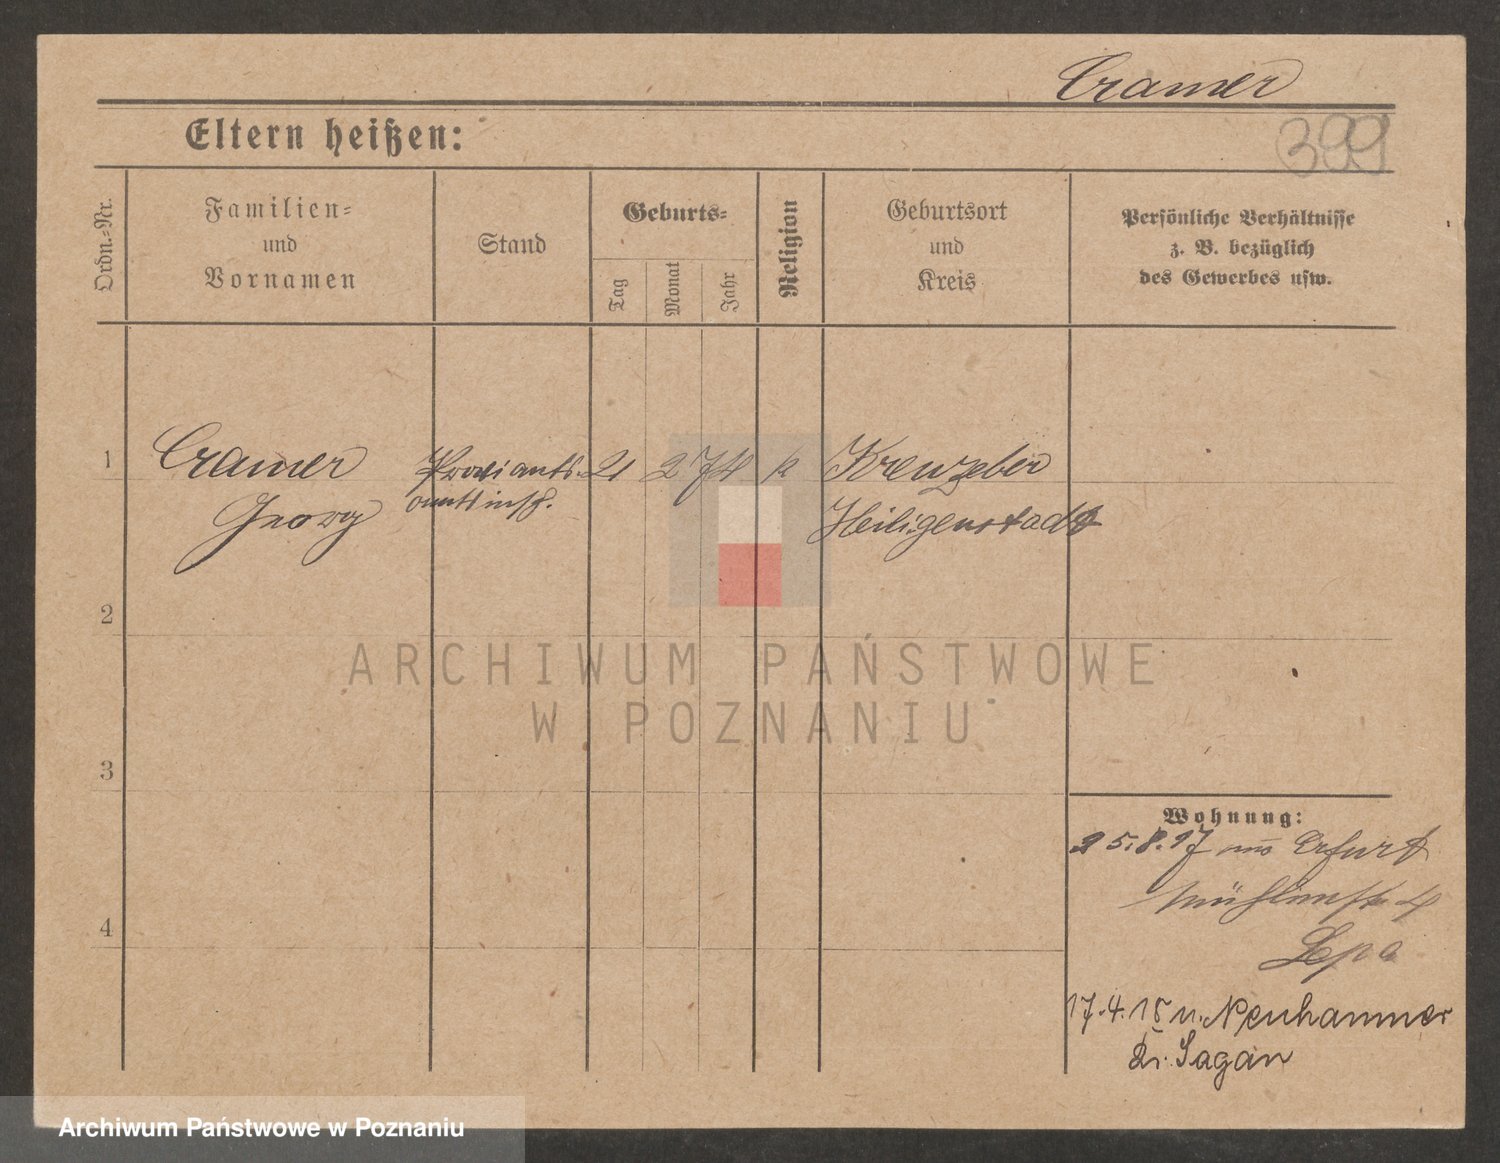 Cramer
Eltern heißen:
399
Ordn.=Nr.
Familien=
und
Vornamen
Stand
Geburts=
Tag
Monat
Jahr
Religion
Geburtsort
und
Kreis
Persönliche Verhältnisse
z. B. bezüglich
des Gewerbes usw.
1
Cramer
Georg
Proviants=
amtsinsp.
21
2
74
k
Kreuzeber
Heiligenstadt
2
3
4
ARCHIWUM PAŃSTWOWE
W POZNANIU
Wohnung:
25.8.17 aus Erfurt
Mühlenstr 4
17.4.18 n. Neuhammer
Kr. Sagan
Archiwum Państwowe w Poznaniu